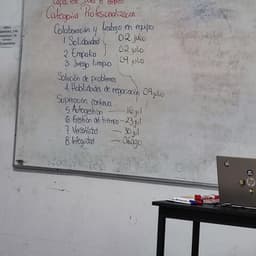 Colaboración y trabajo en equipo
1 Solidaridad 02 julio
2 Empatía 02 julio
3 Juego limpio 09 julio
Solución de problemas
4 Habilidades de negociación 09 julio
Superación continua
5 Autogestión — 16 jul
6 Gestión del tiempo — 23 jul
7 Versatilidad — 30 jul
8 Integridad — 06 ago
hp